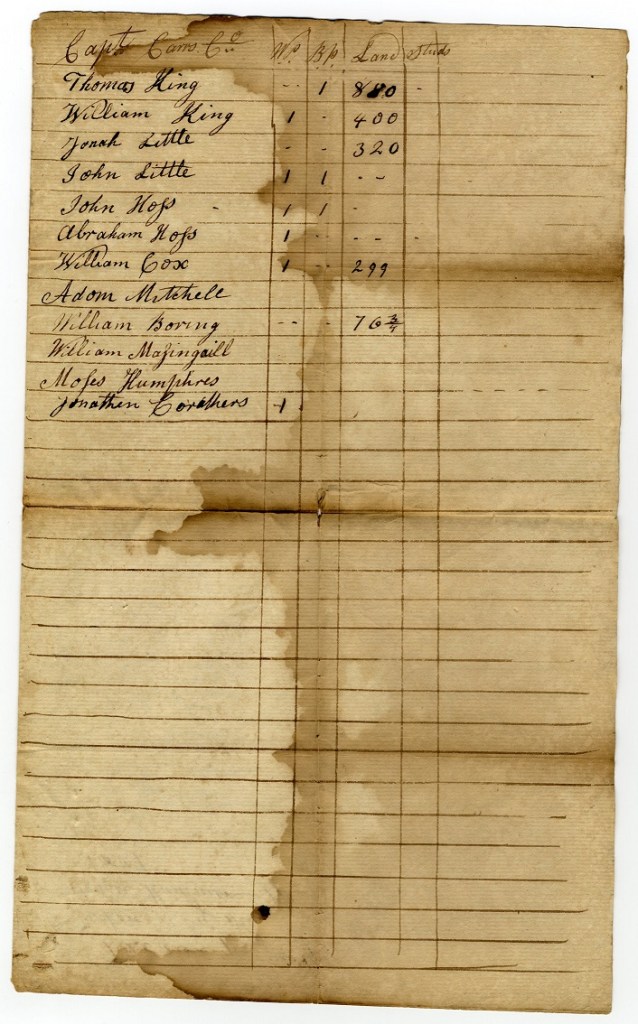 Capt Cams Co W.P. B.P. Land Studs
Thomas King -- 1 880 -
William King 1 - 400
Jonah Little - - 320
John Little 1 1 --
John Hoſs - 1 1 -
Abraham Hoſs 1 - - - -
William Cox 1 -- 299
Adom Mitchell
William Boring -- - 76 3/4
William Maſingaill
Moſes Humphres
Jonathen Corathers 1